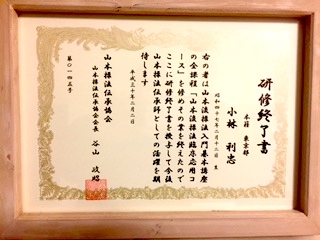 研修終了書
本籍 東京都
小林 利忠
昭和四十七年二月十三日 生
右の者は山本流揉法入門基本講座
の全課程「山本流揉法臨床応用コ
ース」を修めその業を終えたので
ここに研修終了書を授与し今後
山本揉法伝承師としての活躍を期
待します
平成三十年二月二日
山本揉法伝承協会
山本揉法伝承協会会長 谷山
第〇一四三号